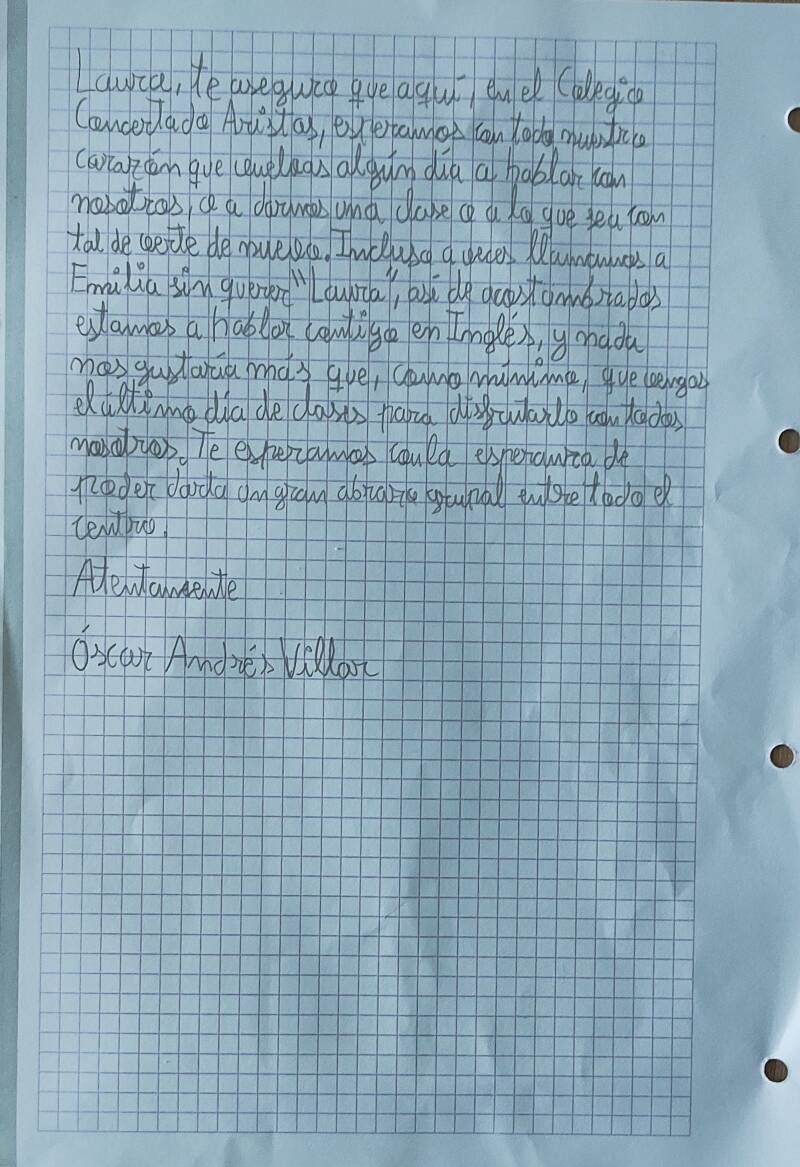 Laura, te aseguro que aquí, en el Colegio
Concertado Aristos, esperamos con todo nuestro
corazón que vuelvas algún día a hablar con
nosotros, o a darnos una clase o a lo que sea con
tal de verte de nuevo. Incluso a veces llamamos a
Emilia sin querer "Laura", así de acostumbrados
estamos a hablar contigo en Inglés, y nada
nos gustaría más que, como mínimo, que vengas
el último día de clases para disfrutarlo con todos
nosotros. Te esperamos con la esperanza de
poder darta un gran abrazo grupal entre todo el
centro.
Atentamente
Óscar Andrés Villar